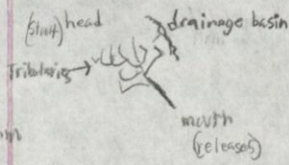 (start) head
drainage basin
Tributaries
mouth
(releases)